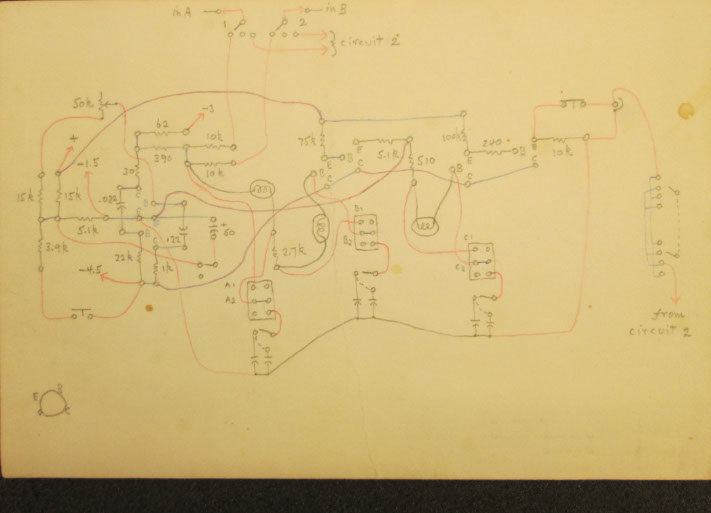 in A
in B
1
2
circuit 2
50k
+
-3
62
390
10k
10k
-1.5
20
15k
15k
.022
5.1k
3.9k
22k
.22
1k
60
-4.5
2.7k
A1
A2
75k
B
E
C
5.1k
510
B1
B2
C1
C2
100k
240
10k
from
circuit 2
E
B
C